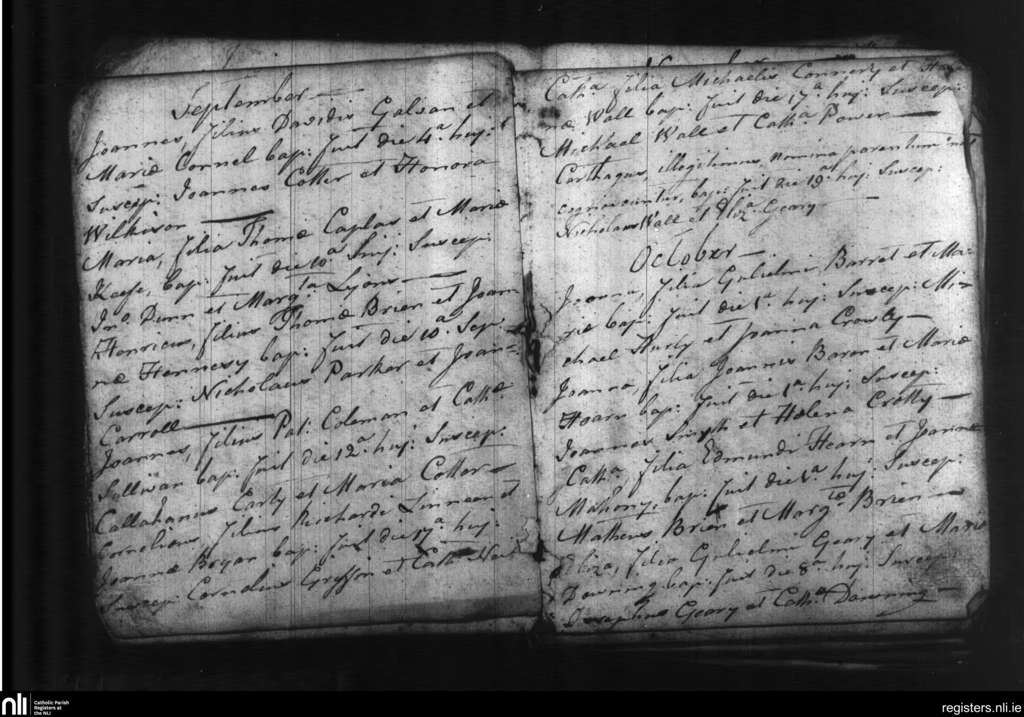 September
Joannes, filius Davidis Galvan et
Mariæ Connel bap: fuit die 4.a huj:
Suscep: Joannes Cotter et Honora
Wilkison
Maria, filia Thomæ Caplas et Mariæ
Keefe, bap: fuit die 10a huj: Suscep:
Jno. Dunn et Margta Lyons
Henricus, filius Thomæ Brien et Joan
næ Hennesy bap: fuit die 10a. Sep.
Suscep: Nicholaus Parker et Joan=
Carroll
Joannes, filius Pat: Coleman et Cathæ
Sullivan bap: fuit die 12a. huj: Suscep:
Callahanus Carty et Maria Cotter
Cornelius, filius Richardi Linnean et
Joannæ Bryan bap: fuit die 17a huj:
Suscep: Cornelius Gryffon et Catha
Catha. filia Michaelis Connerty et
næ Wall bap: fuit die 17a. huj: Suscep:
Michael Wall et Catha Power
Carthagus, illegitimus, nomina parentum
cognoscuntur, bap: fuit die 19a. huj: Suscep:
Nicholaus Wall et Eliza Geary
October
Joanna, filia Gulielmi Barret et Ma-
riæ bap: fuit die 1a. huj: Suscep: Mi-
chael Hurly et Joanna Crowly
Joanna filia Joannis Baron et Mariæ
Hoarn bap: fuit die 1a. huj: Suscep:
Joannes Smyth et Helena Crotty
Catha. filia Edmundi Hearn et Joannæ
Mahony: bap: fuit die 1a. huj: Suscep:
Matheus Brien et Margta Brien
Eliza, filia Gulielmi Geary et Mariæ
Downing bap: fuit die 8a. huj: Suscep:
Josephus Geary et Catha. Downing
nli
Catholic Parish
Registers at
the NLI
registers.nli.ie